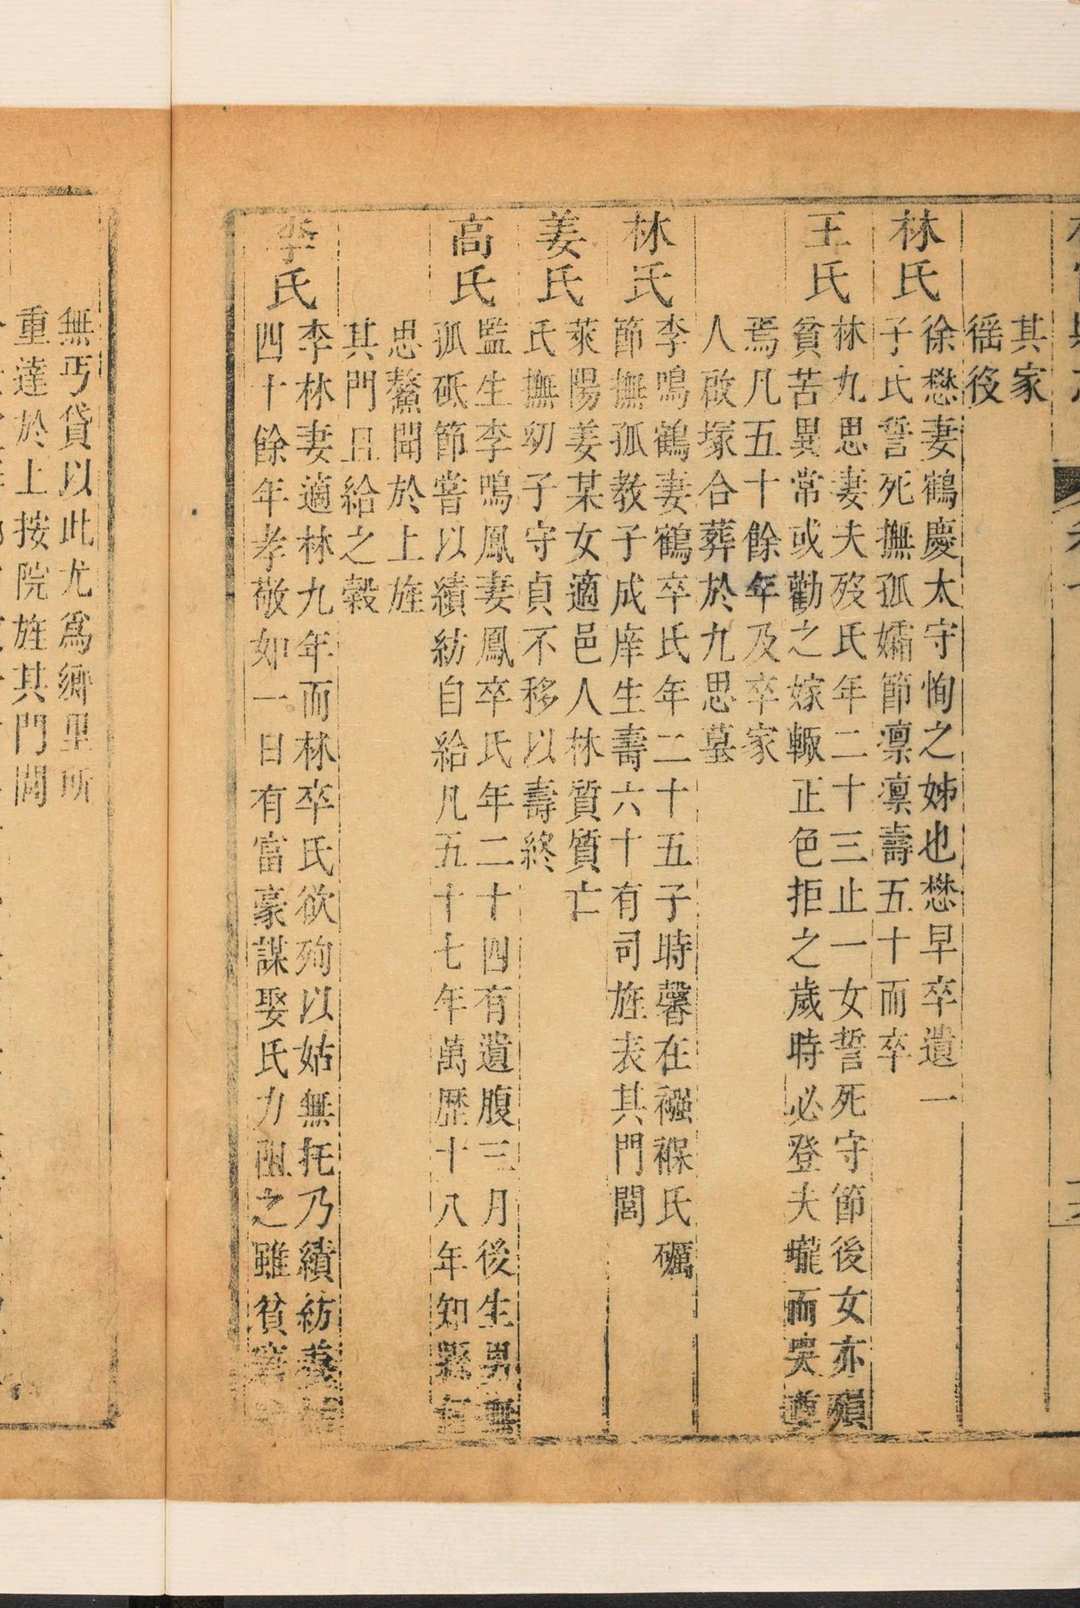 其家
徭役
林氏
徐懋妻鶴慶太守恂之姊也懋早卒遺一
子氏誓死撫孤孀節凛凛壽五十而卒
王氏
林九思妻夫歿氏年二十三止一女誓死守節後女亦殞
貧苦異常或勸之嫁輙正色拒之歲時必登夫壠而哭尊
焉凡五十餘年及卒家
人啟塚合葬於九思墓
林氏
李鳴鶴妻鶴卒氏年二十五子時馨在襁褓氏礪
節撫孤教子成庠生壽六十有司旌表其門閭
姜氏
萊陽姜某女適邑人林質質亡
氏撫幼子守貞不移以壽終
高氏
監生李鳴鳳妻鳳卒氏年二十四有遺腹三月後生男無
孤砥節嘗以績紡自給凡五十七年萬歴十八年知縣
思鰲聞於上旌
其門且給之穀
李氏
李林妻適林九年而林卒氏欲殉以姑無托乃績紡養
四十餘年孝敬如一日有富豪謀娶氏力阻之雖貧
無丐貸以此尤為鄉里所
重達於上按院旌其門閭